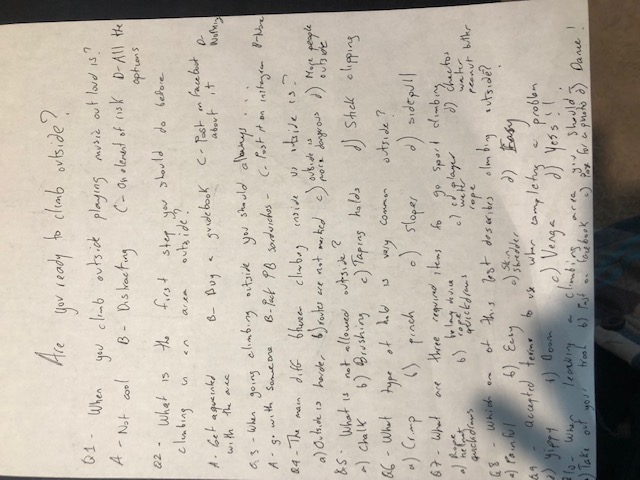 Are you ready to climb outside?
Q1 - When you climb outside playing music out loud is?
A - Not cool B - Distracting C - On element of risk D - All the
options
Q2 - What is the first step you should do before
climbing in an area outside?
A. Get aquainted B - Buy a guidebook C - Post on facebook D-
with the area about it Nothing
Q3 - When going climbing outside you should always...
A - go with someone B - Pack PB sandwiches - C - Post it on instagram D - None
Q4 - The main diff btween climbing inside vs outside is?
a) Outside is harder b) routes are not marked c) outside is d) More people
more dangerous outside
Q5 - What is not allowed outside?
a) Chalk b) Brushing c) Taping holds d) Stick clipping
Q6 - What type of hold is very common outside?
a) Crimp b) pinch c) sloper d) sidepull
Q7 - What are three required items to go sport climbing
a) Rope b) belay device c) cd player d) cheetos
helmet rope water water
quickdraws quickdraws rope peanut butter
Q8 - Which one of this best describes climbing outside?
a) Painful b) Easy c) Skin d) Easy
shredder
Q9 - accepted terms to use when completing a problem
a) Yippy b) Boom c) Venga d) Yess!!
Q10 - When leaving a climbing area you should -
a) Take out your trash b) Post on facebook c) Pose for a photo d) Dance!